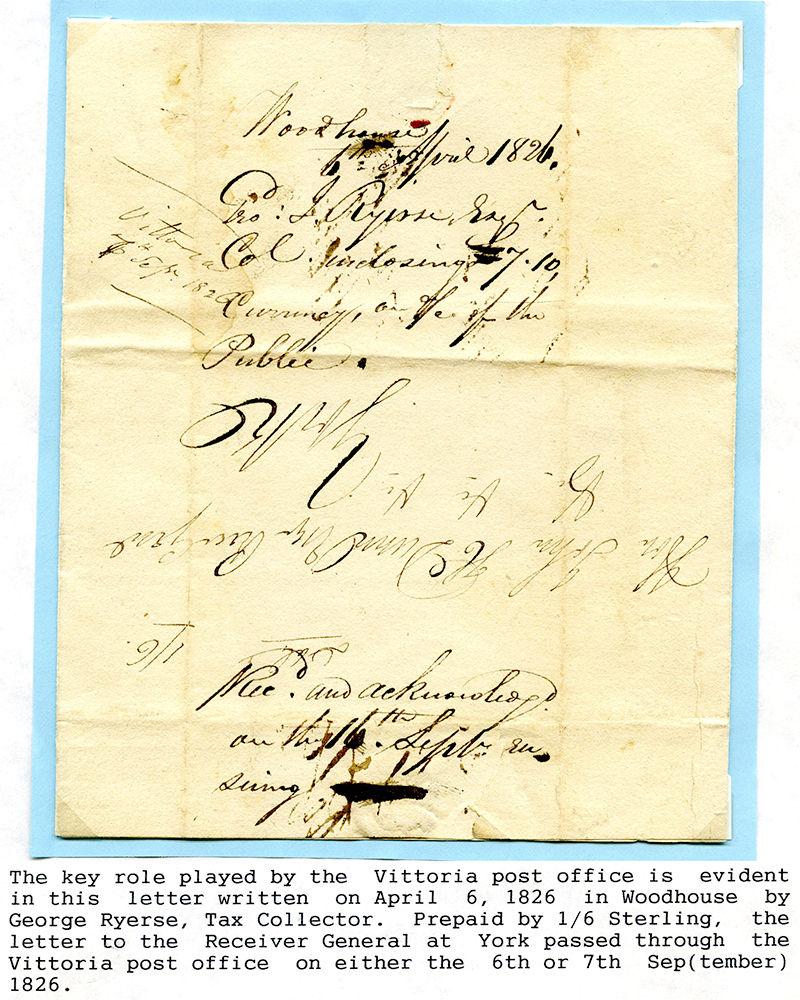 Woodhouse
6th April 1826.
Geo: J. Ryerse Esqr.
Col. inclosing £7.10,
Currency, on %c of the
Public.
Vittoria
7th Sep. 1826
York
U. C.
Hon John H Dunn Recr Genl
1/6
Paid
Recd. and acknowledged
on the 16th Septr. en
suing
The key role played by the Vittoria post office is evident
in this letter written on April 6, 1826 in Woodhouse by
George Ryerse, Tax Collector. Prepaid by 1/6 Sterling, the
letter to the Receiver General at York passed through the
Vittoria post office on either the 6th or 7th Sep(tember)
1826.